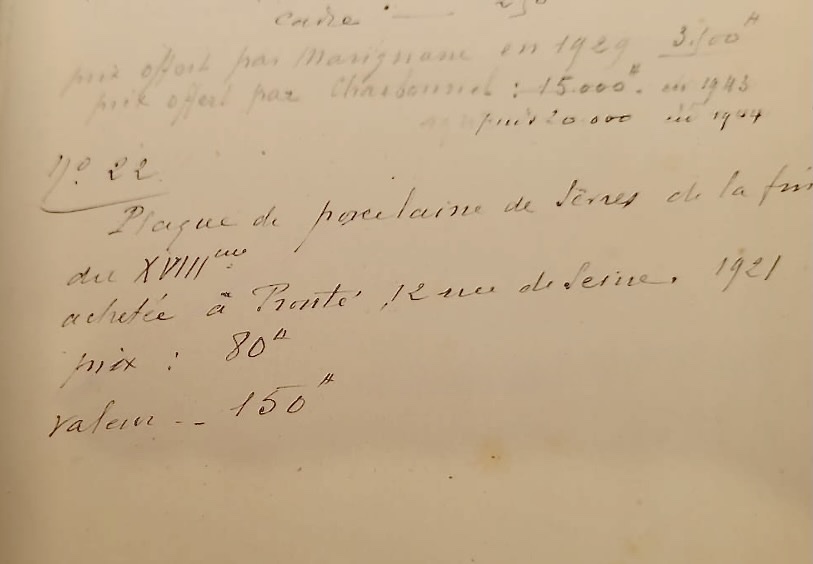 cadre . — 250
prix offert par Marignane en 1929 3.500#
prix offert par Charbonnel : 15.000#. en 1943
puis 20.000 en 1944
No. 22
Plaque de porcelaine de Sèvres de la fin
du XVIIIème
achetée à Prouté, 12 rue de Seine. 1921
prix : 80#
valeur -- 150#